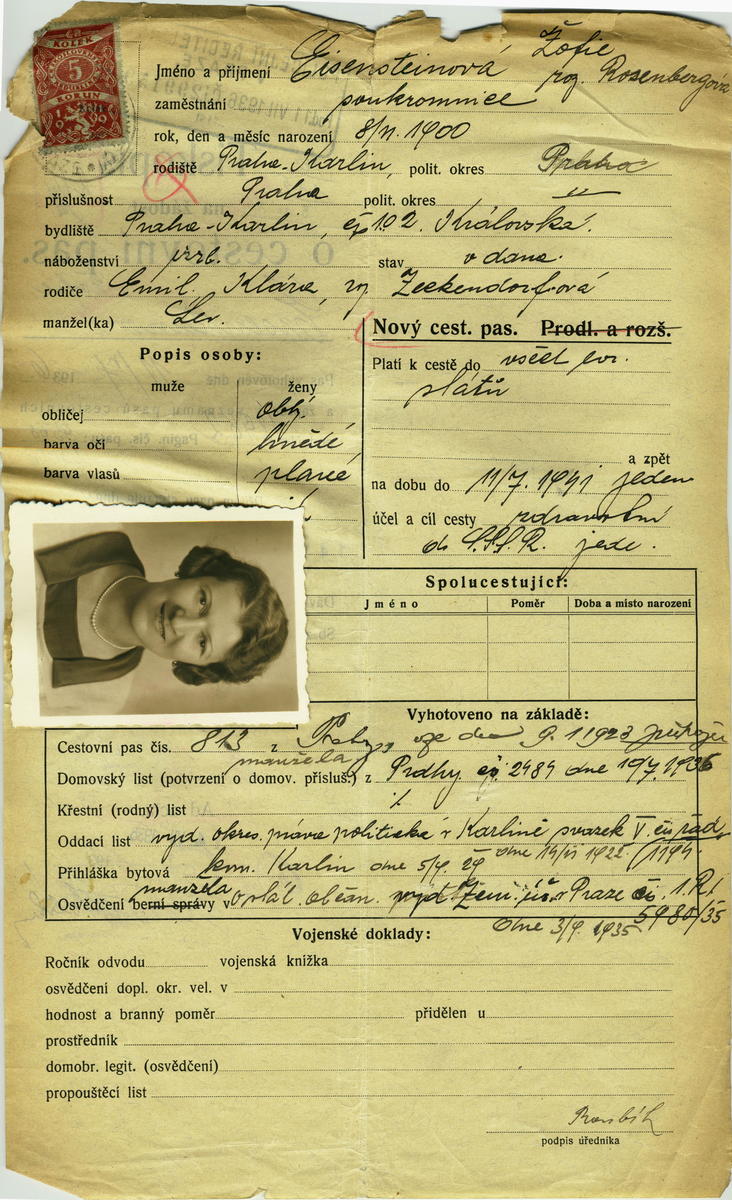 KOLEK
5
KORUN
1919
Eisensteinová Žofie
Jméno a příjmení roz. Rosenbergová
zaměstnání soukromnice
rok, den a měsíc narození 8/11. 1900
rodiště Praha-Karlín, polit. okres Praha
příslušnost Praha polit. okres "
bydliště Praha-Karlín, čp 102. Královská.
náboženství stav vdaná.
rodiče Emil. Klára, roz. Zeckendorfová
manžel(ka) Lev.
Nový cest. pas. Prodl. a rozš.
Popis osoby:
Platí k cestě do všech evr.
muže ženy
států
obličej obl.
barva očí hnědé
a zpět
barva vlasů plavé
na dobu do 11/7. 1941 jeden
účel a cíl cesty zdravotní
do S.S.S.R. jede.
Spolucestující:
Jméno Poměr Doba a místo narození
Vyhotoveno na základě:
Cestovní pas čís. 813 z Prahy ze dne 9. 1 1923
manžela
Domovský list (potvrzení o domov. přísluš.) z Prahy čj 2484 dne 19/7. 1936
Křestní (rodný) list ./.
Oddací list vyd. okres. správa politická v Karlíně svazek V. čís řad
Přihláška bytová kom. Karlín dne 5/4. 29 dne 14/11 1922. /1194
manžela
Osvědčení berní správy v o stát. občan. vyd. Zem. úř. v Praze čís. 1. Rt
5980/35
dne 3/9. 1935
Vojenské doklady:
Ročník odvodu vojenská knížka
osvědčení dopl. okr. vel. v
hodnost a branný poměr přidělen u
prostředník
domobr. legit. (osvědčení)
propouštěcí list
podpis úředníka